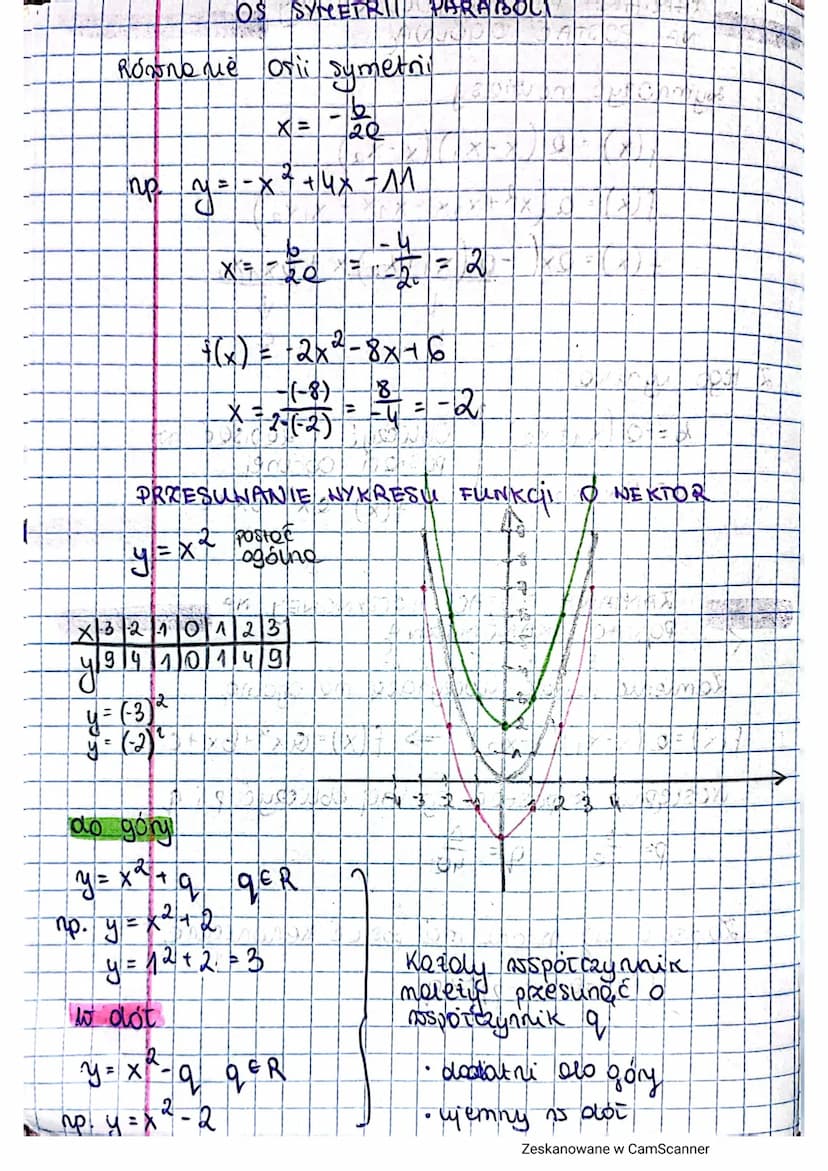 OŚ SYMETRII PARABOLI
Równanie osi symetrii
x = -b/2a
np. y = -x² + 4x - 11
x = -b/2a = -4/-2 = 2
f(x) = -2x² - 8x + 6
x = -(-8)/2·(-2) = 8/-4 = -2
PRZESUWANIE WYKRESU FUNKCJI O WEKTOR
y = x² postać
ogólna
x|-3|-2|1|0|1|2|3|
y|9|4|1|0|1|4|9|
y = (-3)²
y = (-2)²
-4 -3 -2 -1 1 2 3 4
do góry
y = x² + q q∈R
np. y = x² + 2
y = 1² + 2 = 3
w dół
y = x² - q q∈R
np. y = x² - 2
Każdy współczynnik
należy przesunąć o
współczynnik q
· dodatni do góry
· ujemny w dół
Zeskanowane w CamScanner